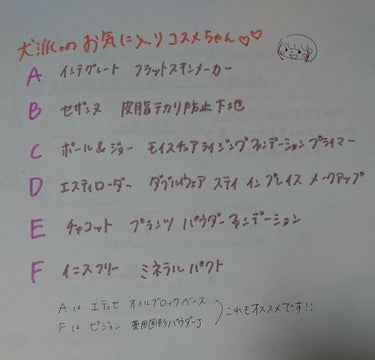 犬派。のお気に入りコスメちゃん♡♡
A インテグレート フラットスキンメーカー
B セザンヌ 皮脂テカリ防止下地
C ポール&ジョー モイスチュアライジングファンデーションプライマー
D エスティローダー ダブルウェア ステイ イン プレイス メークアップ
E チャコット プランツ パウダーファンデーション
F イニスフリー ミネラルパクト
Aは エテュセ オイルブロックベース
Fは ピジョン 薬用固形パウダーJ
これもオススメです!!